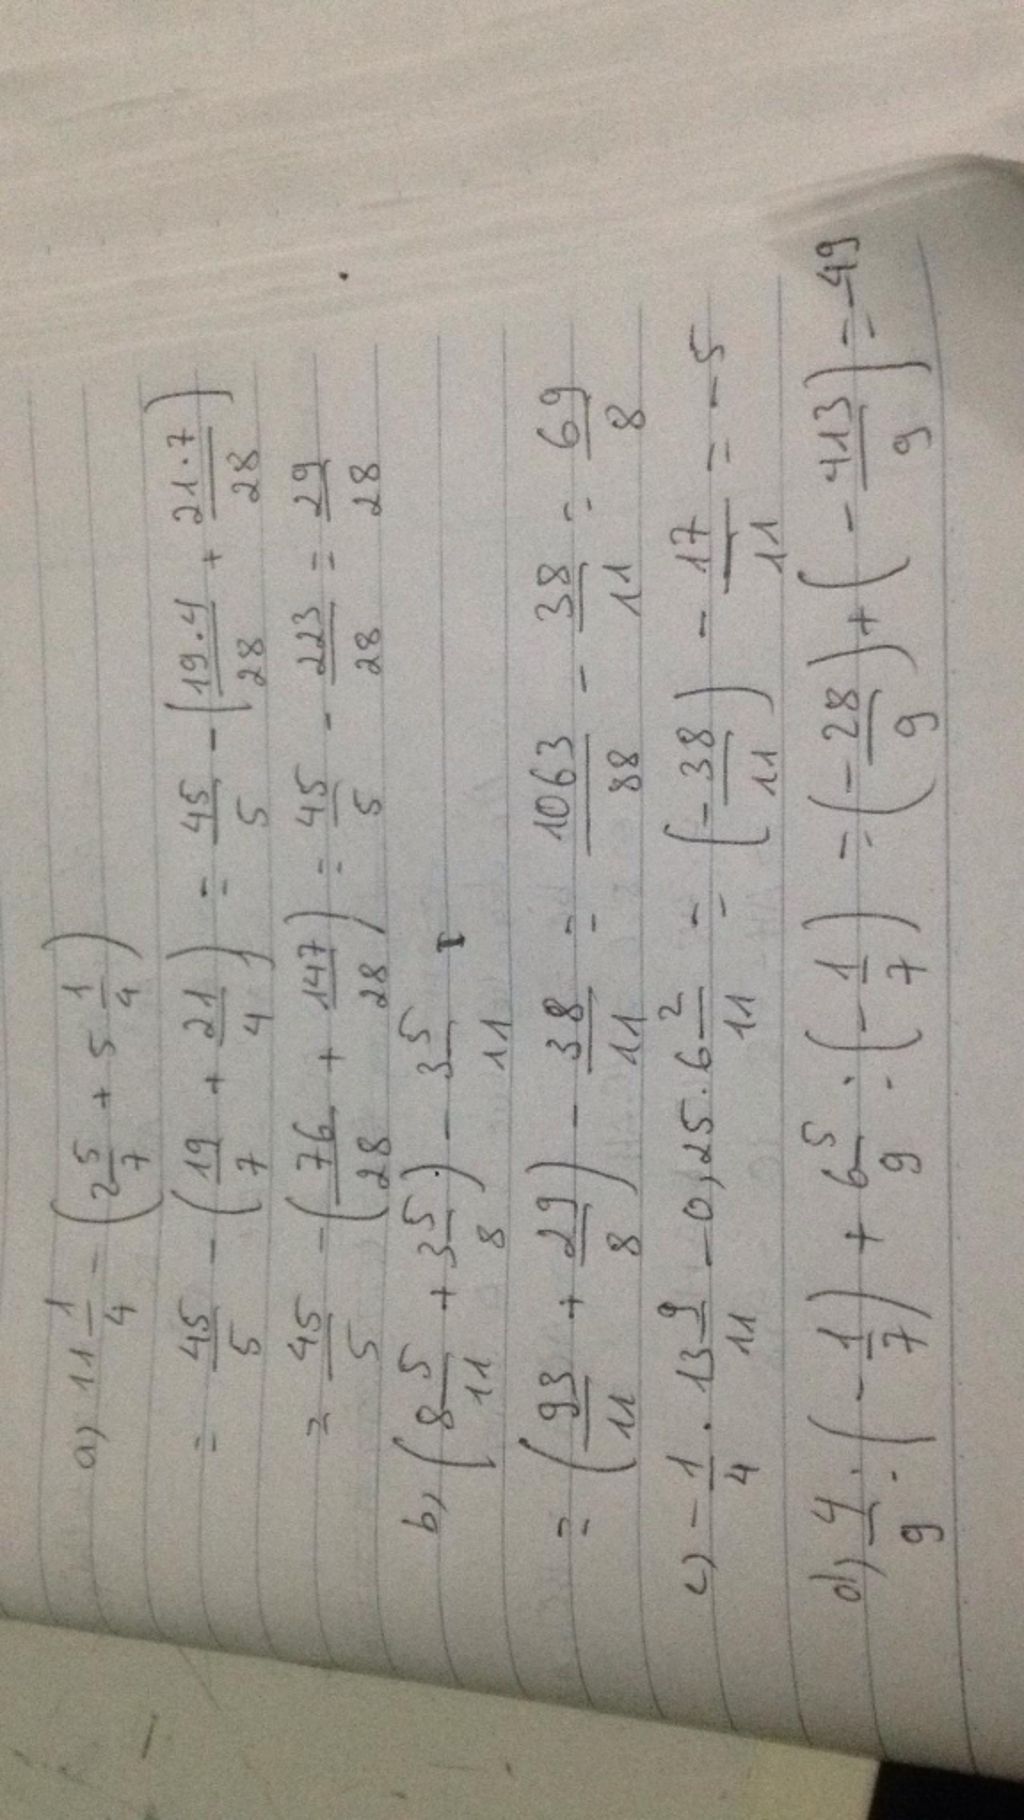 a) 11 1/4 - (2 5/7 + 5 1/4)
= 45/5 - (19/7 + 21/4) = 45/5 - (19.4/28 + 21.7/28)
= 45/5 - (76/28 + 147/28) = 45/5 - 223/28 = 29/28
b) (8 5/11 + 3 5/8) - 3 5/11
= (93/11 + 29/8) - 38/11 = 1063/88 - 38/11 = 69/8
c) - 1/4 . 13 9/11 - 0,25 . 6 2/11 = (-38/11) - 17/11 = -5
d) 4/9 : (- 1/7) + 6 5/9 : (- 1/7) = (- 28/9) + (- 413/9) = -49